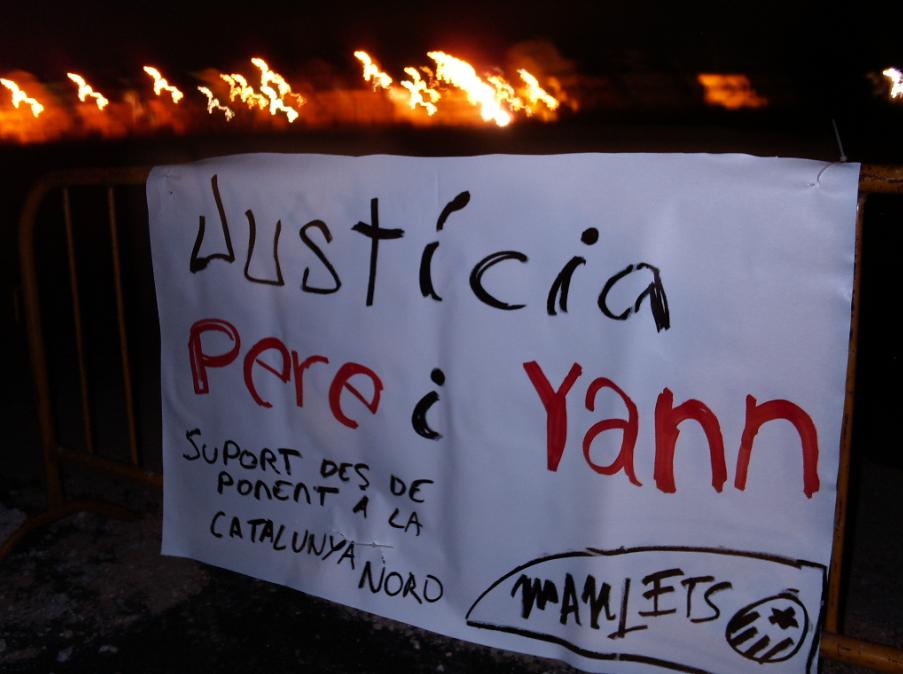 Justícia
Pere i Yann
SUPORT DES DE
PONENT A LA
CATALUNYA
NORD
MAULETS